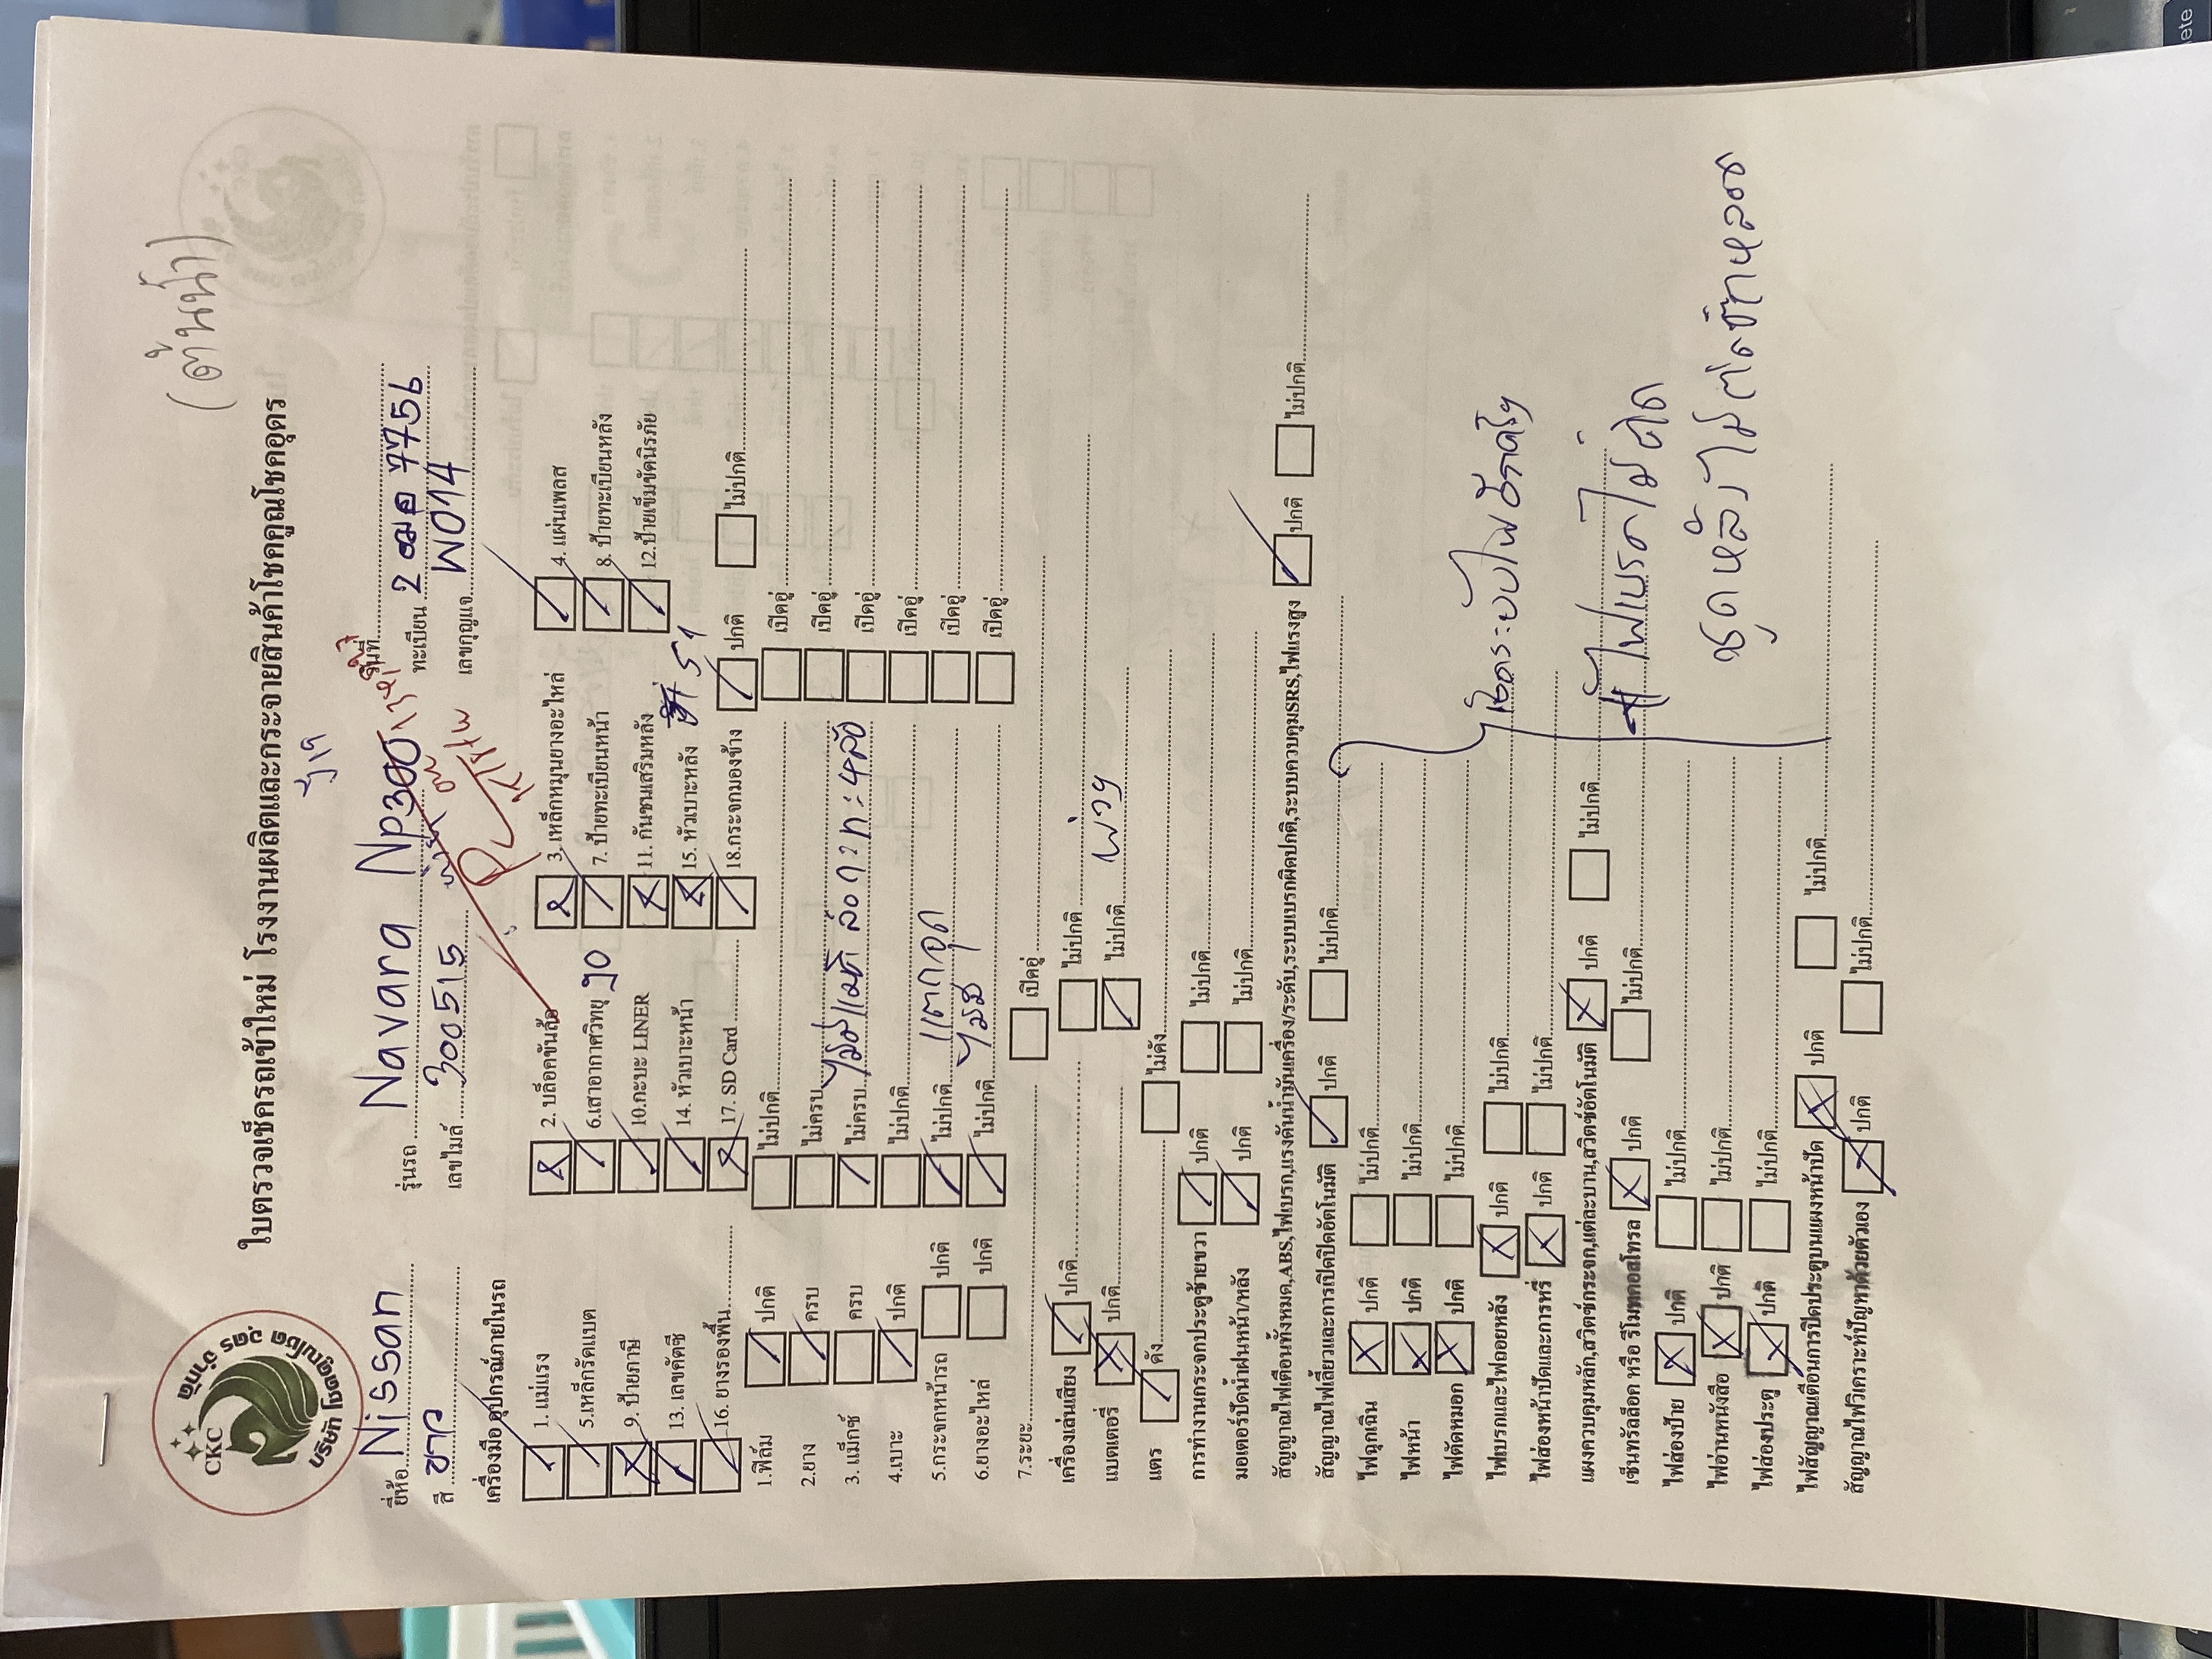 (ต้นน้ำ)
CKC
บริษัท โชคคูณโชค อุดร จำกัด
ใบตรวจเช็ครถเข้าใหม่ โรงงานผลิตและกระจายสินค้าโชคคูณโชคอุดร
ยี่ห้อ Nissan รุ่นรถ Navara Np300 วันที่
สี ขาว เลขไมล์ 300515 ทะเบียน 2 ฒอ 7756
เลขกุญแจ W014
เครื่องมืออุปกรณ์ภายในรถ
1. แม่แรง 2. บล็อคขันล้อ 3. เหล็กหมุนยางอะไหล่ 4. แผ่นเพลส
5.เหล็กรัดแบต 6.เสาอากาศวิทยุ 7. ป้ายทะเบียนหน้า 8. ป้ายทะเบียนหลัง
9. ป้ายภาษี 10.กะบะ LINER 11. กันชนเสริมหลัง 12.ป้ายเข็มขัดนิรภัย
13. เลขคัตซี 14. หัวเบาะหน้า 15. หัวเบาะหลัง
16. ยางรองพื้น 17. SD Card 18.กระจกมองข้าง ปกติ ไม่ปกติ
1.ฟิล์ม ปกติ ไม่ปกติ เปิดอู่
2.ยาง ครบ ไม่ครบ เปิดอู่
3. แม็กซ์ ครบ ไม่ครบ ไม่ใช่แม็ก ล้อกะทะ 4ล้อ เปิดอู่
4.เบาะ ปกติ ไม่ปกติ เปิดอู่
5.กระจกหน้ารถ ปกติ ไม่ปกติ แตก จุด เปิดอู่
6.ยางอะไหล่ ปกติ ไม่ปกติ ไม่มี เปิดอู่
7.ระยะ เปิดอู่
เครื่องเล่นเสียง ปกติ ไม่ปกติ
แบตเตอรี่ ปกติ ไม่ปกติ พ่วง
แตร ดัง ไม่ดัง
การทำงานกระจกประตูซ้ายขวา ปกติ ไม่ปกติ
มอเตอร์ปัดน้ำฝนหน้า/หลัง ปกติ ไม่ปกติ
สัญญาณไฟเตือนทั้งหมด,ABS,ไฟเบรก,แรงดันน้ำมันเครื่อง/ระดับ,ระบบเบรกผิดปกติ,ระบบควบคุมSRS,ไฟแรงสูง ปกติ ไม่ปกติ
สัญญาณไฟเลี้ยวและการเปิดปิดอัตโนมัติ ปกติ ไม่ปกติ
ไฟฉุกเฉิน ปกติ ไม่ปกติ
ไฟหน้า ปกติ ไม่ปกติ
ไฟตัดหมอก ปกติ ไม่ปกติ
ไฟเบรกและไฟถอยหลัง ปกติ ไม่ปกติ
ไฟส่องหน้าปัดและการหรี่ ปกติ ไม่ปกติ
แผงควบคุมหลัก,สวิตช์กระจก,แต่ละบาน,สวิตช์อัตโนมัติ ปกติ ไม่ปกติ
เซ็นทรัลล็อค หรือ รีโมทคอลโทรล ปกติ ไม่ปกติ
# ไฟเบรกไม่ติด
ไฟส่องป้าย ปกติ ไม่ปกติ
ไฟอ่านหนังสือ ปกติ ไม่ปกติ
ไฟส่องประตู ปกติ ไม่ปกติ
ไฟสัญญาณเตือนการปิดประตูบนแผงหน้าปัด ปกติ ไม่ปกติ
สัญญาณไฟวิเคราะห์ปัญหาด้วยตัวเอง ปกติ ไม่ปกติ